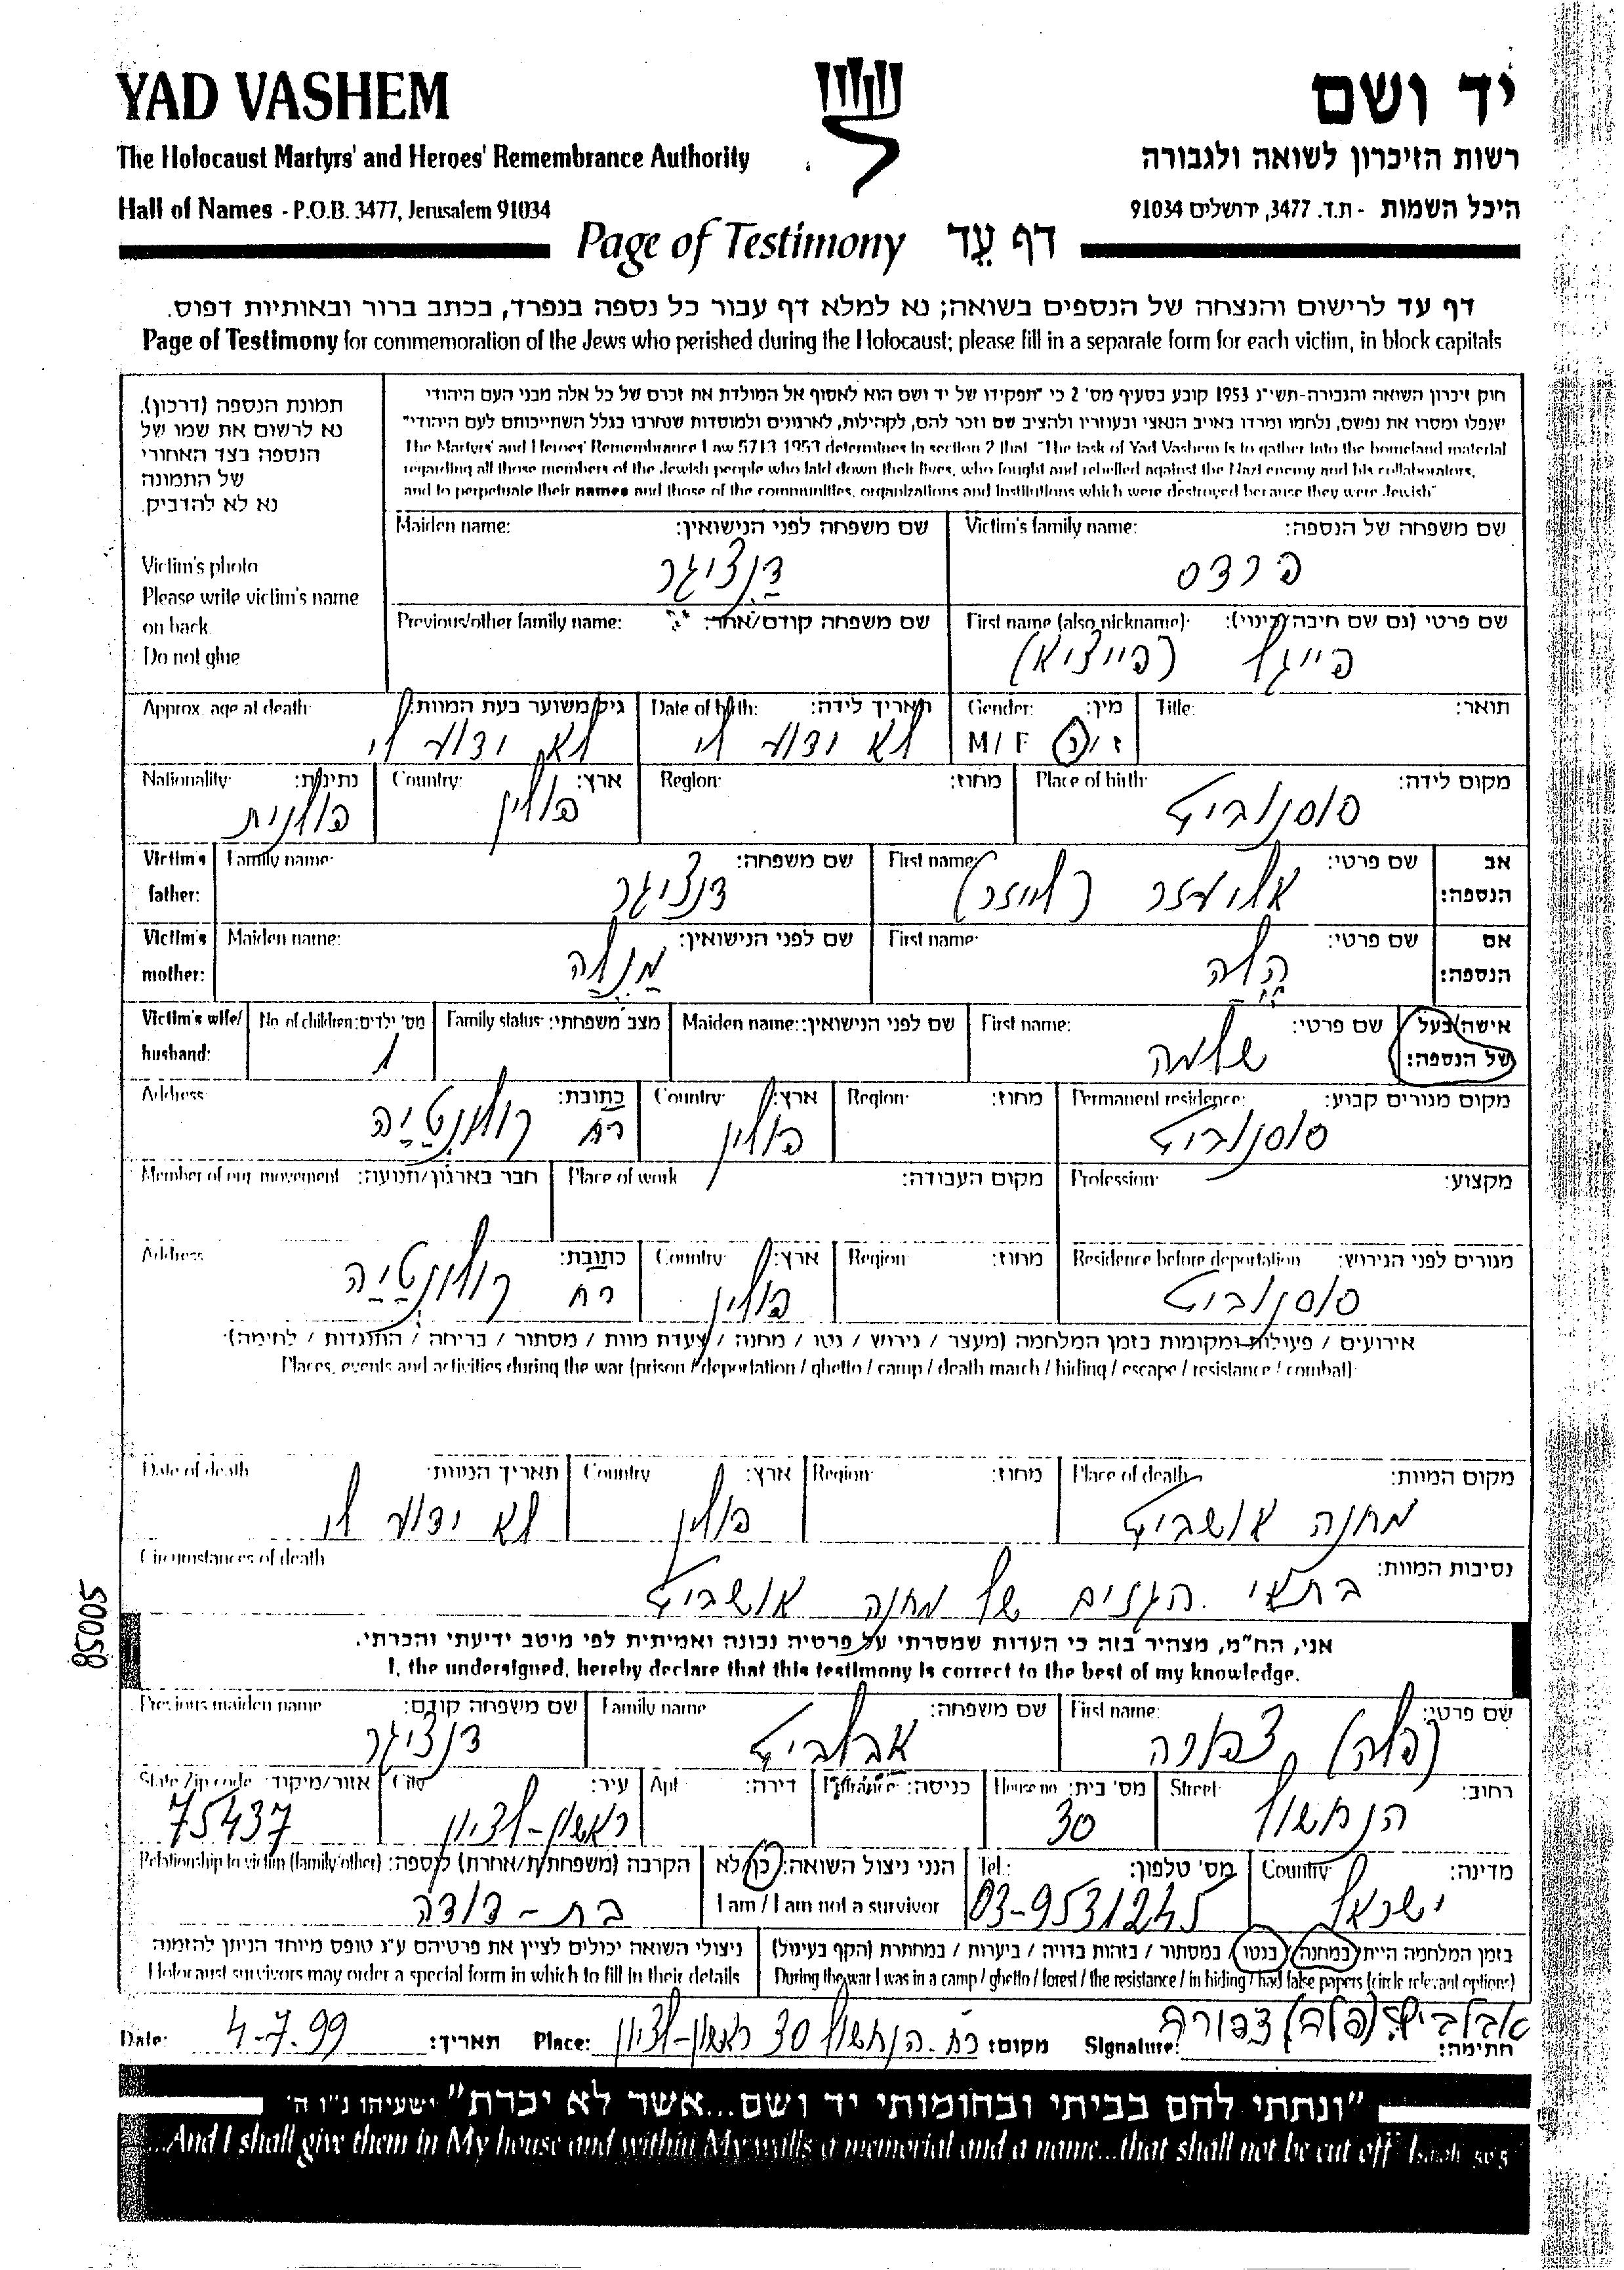 YAD VASHEM
יד ושם
The Holocaust Martyrs' and Heroes' Remembrance Authority
רשות הזיכרון לשואה ולגבורה
Hall of Names - P.O.B. 3477, Jerusalem 91034
היכל השמות - ת.ד. 3477, ירושלים 91034
Page of Testimony דף עֵד
דף עד לרישום והנצחה של הנספים בשואה; נא למלא דף עבור כל נספה בנפרד, בכתב ברור ובאותיות דפוס.
Page of Testimony for commemoration of the Jews who perished during the Holocaust; please fill in a separate form for each victim, in block capitals
תמונת הנספה (דרכון).
נא לרשום את שמו של
הנספה בצד האחורי
של התמונה
נא לא להדביק.
Victim's photo
Please write victim's name
on back
Do not glue
חוק זיכרון השואה והגבורה-תשי"ג 1953 קובע בסעיף מס' 2 כי "תפקידו של יד ושם הוא לאסוף אל המולדת את זכרם של כל אלה מבני העם היהודי
שנפלו ומסרו את נפשם, נלחמו ומרדו באויב הנאצי ובעוזריו ולהציב שם וזכר להם, לקהילות, לארגונים ולמוסדות שנחרבו בגלל השתייכותם לעם היהודי"
The Martyrs' and Heroes' Remembrance Law 5713 1953 determines in section 2 that "The task of Yad Vashem is to gather into the homeland material
regarding all those members of the Jewish people who laid down their lives, who fought and rebelled against the Nazi enemy and his collaborators,
and to perpetuate their names and those of the communities, organizations and institutions which were destroyed because they were Jewish"
שם משפחה של הנספה: Victim's family name:
פרדס
שם משפחה לפני הנישואין: Maiden name:
דנציגר
שם פרטי (גם שם חיבה/כינוי): First name (also nickname):
פייגל (פייציא)
שם משפחה קודם/אחר: Previous/other family name:
תואר: Title:
מין: Gender:
ז / נ M / F
תאריך לידה: Date of birth:
לא ידוע לי
גיל משוער בעת המוות: Approx. age at death:
לא ידוע לי
מקום לידה: Place of birth:
סוסנוביץ
מחוז: Region:
ארץ: Country:
פולין
נתינות: Nationality:
פולנית
אב הנספה: Victim's father:
שם פרטי: First name:
אליעזר (לייזר)
שם משפחה: Family name:
דנציגר
אם הנספה: Victim's mother:
שם פרטי: First name:
הלה
שם לפני הנישואין: Maiden name:
מנלה
אישה/בעל של הנספה: Victim's wife/ husband:
שם פרטי: First name:
שלמה
שם לפני הנישואין: Maiden name:
מצב משפחתי: Family status:
מס' ילדים: No. of children:
1
מקום מגורים קבוע: Permanent residence:
סוסנוביץ
מחוז: Region:
ארץ: Country:
פולין
כתובת: Address:
רח קולונטיה
מקצוע: Profession:
מקום העבודה: Place of work
חבר בארגון/תנועה: Member of org. movement
מגורים לפני הגירוש: Residence before deportation
סוסנוביץ
מחוז: Region:
ארץ: Country:
פולין
כתובת: Address
רח קולונטיה
אירועים / פעילות ומקומות בזמן המלחמה (מעצר / גירוש / גטו / מחנה / צעדת מוות / מסתור / בריחה / התנגדות / לחימה):
Places, events and activities during the war (prison / deportation / ghetto / camp / death march / hiding / escape / resistance / combat):
מקום המוות: Place of death
מחנה אושביץ
מחוז: Region:
ארץ: Country
פולין
תאריך המוות: Date of death
לא ידוע לי
נסיבות המוות: Circumstances of death
בתאי הגזים של מחנה אושביץ
85005
אני, הח"מ, מצהיר בזה כי העדות שמסרתי על פרטיה נכונה ואמיתית לפי מיטב ידיעתי והכרתי.
I, the undersigned, hereby declare that this testimony is correct to the best of my knowledge.
שם פרטי: First name:
(פלה) צפורה
שם משפחה: Family name
אבלביץ
שם משפחה קודם: Previous maiden name
דנציגר
רחוב: Street
הנחשול
מס' בית: House no.
30
כניסה: Entrance
דירה: Apt.
עיר: City
ראשון-לציון
אזור/מיקוד: State/Zip code
75437
מדינה: Country
ישראל
מס' טלפון: Tel.:
03-9531245
הנני ניצול השואה: כן/לא
I am / I am not a survivor
הקרבה (משפחתית/אחרת) לנספה: Relationship to victim (family/other)
בת-דודה
בזמן המלחמה הייתי במחנה / בגטו / במסתור / בזהות בדויה / ביערות / במחתרת (הקף בעיגול)
During the war I was in a camp / ghetto / forest / the resistance / in hiding / had false papers (circle relevant options)
ניצולי השואה יכולים לציין את פרטיהם ע"ג טופס מיוחד הניתן להזמנה
Holocaust survivors may order a special form in which to fill in their details
Date: 4-7.99 תאריך: Place: רח. הנחשול 30 ראשון-לציון מקום: Signature: אבלביץ (פלה) צפורה חתימה:
"ונתתי להם בביתי ובחומותי יד ושם...אשר לא יכרת" ישעיהו נ"ו ה'
...And I shall give them in My house and within My walls a memorial and a name...that shall not be cut off" Isaiah 56:5